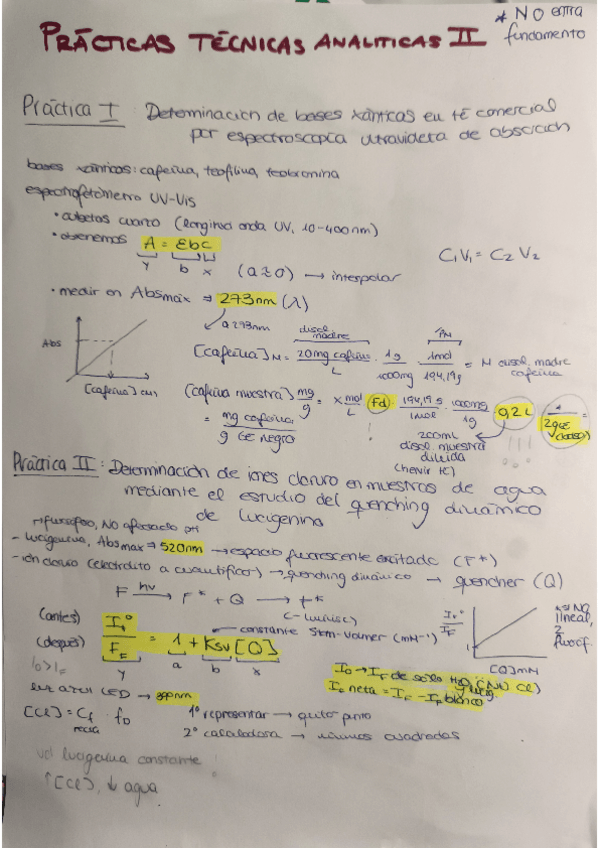 * NO entra
fundamento
PRÁCTICAS TÉCNICAS ANALITICAS II
Práctica I : Determinacion de bases xánticas en té comercial
por espectroscopía ultravioleta de absorción
bases xánticas: cafeína, teofilina, teobromina
espectrofotómetro UV-Vis
• cubetas cuarzo (longitud onda UV, 10-400nm)
• obtenemos A = εbc
y b x (a≈0) → interpolar
C₁V₁ = C₂V₂
• medir en Absmax ⇒ 273nm (λ)
a 273nm
disol. madre
PM
Abs
[cafeína] M = 20mg cafeína / L · 1g / 1000mg · 1mol / 194,19g = M disol. madre cafeína
[cafeína]
[cafeína muestra] mg/g = x mol/L · Fd · 194,19g / 1mol · 1000mg / 1g · 0,2L ·
= mg cafeína / g té negro
!
200mL
disol muestra
diluida
(hervir té)
!!!
Práctica II : Determinación de iones cloruro en muestras de agua
mediante el estudio del quenching dinámico
de lucigenina
NO afectado pH
- lucigenina, Absmax ⇒ 520nm → especie fluorescente excitada (F*)
- ión cloruro (electrolito a cuantificar) → quenching dinámico → quencher (Q)
F hν → F* + Q →
(antes) I₀
(después) F_F = 1 + Ksv[Q]
constante Stern-Volmer (mM⁻¹)
y a b x
[Q] mM
* NO
lineal,
2
LED →
[Cl] = Cf fD
1º representar → quito punto
2º calculadora → mínimos cuadrados
vol lucigenina constante
↑[Cl], ↓ agua